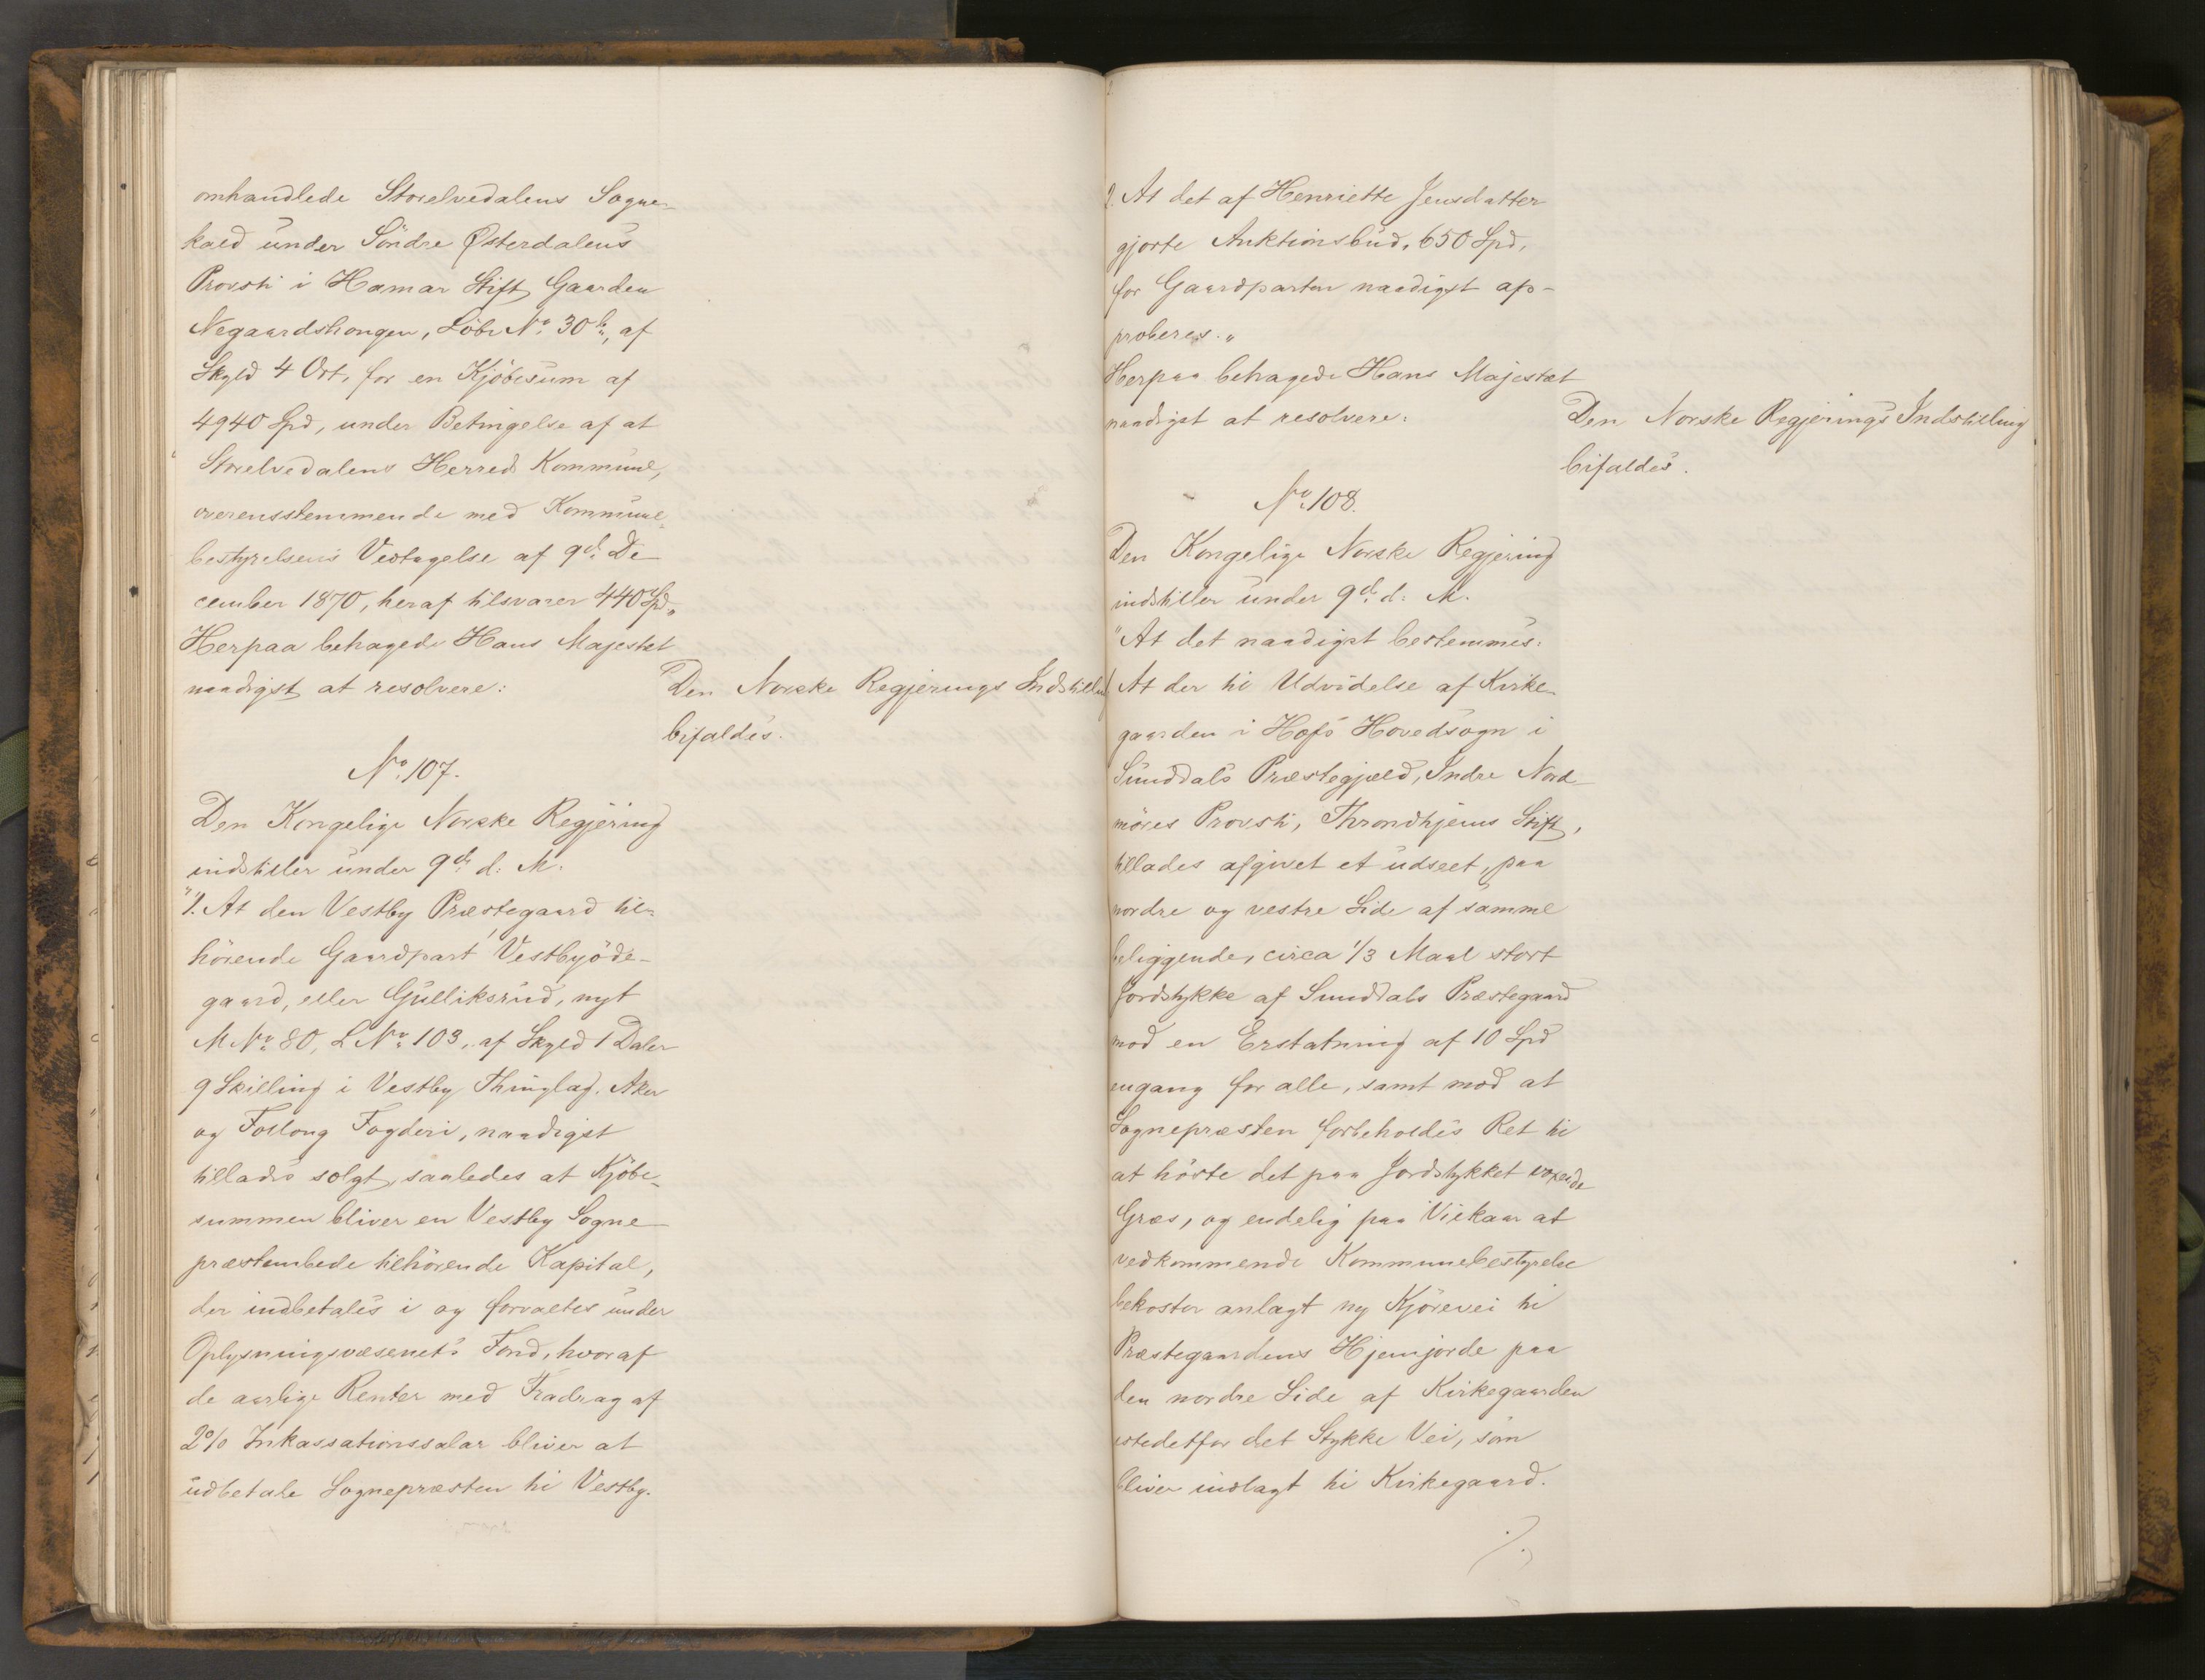 omhandlede Storelvedalens Sogne-
kald under Söndre Østerdalens
Provsti i Hamar Stift, Gaarden
Negaardshongen, Löbe No. 30 b, af
Skyld 4 Ort, for en Kjöbesum af
4940 Spd, under Betingelse af at
Storelvedalens Herreds Kommune,
overensstemmende med Kommune-
bestyrelsens Vedtagelse af 9de De
cember 1870, heraf tilsvarer 440 Spd."
Herpaa behagede Hans Majestet
naadigst at resolvere:
Den Norske Regjerings Indstilling
bifaldes.
No. 107.
Den Kongelige Norske Regjering
indstiller under 9de d: M.
"1. At den Vestby Præstegaard til-
hörende Gaardpart Vestbyöde-
gaard, eller Gulliksrud, nyt
M No. 80, L No. 103, af Skyld 1 Daler
9 Skilling i Vestby Thinglag, Aker
og Follong Fogderi, naadigst
tillades solgt, saaledes at Kjöbe-
summen bliver en Vestby Sogne
præstembede tilhörende Kapital,
der indbetales i og forvaltes under
Oplysningsvæsenets Fond, hvoraf
de aarlige Renter med Fradrag af
2% Inkassationssalar bliver at
udbetale Sognepræsten til Vestby.
2. At det af Henriette Jensdatter
gjorte Auktionsbud, 650 Spd,
for Gaardparten naadigst ap-
proberes."
Herpaa behagede Hans Majestæt
naadigst at resolvere:
Den Norske Regjerings Indstilling
bifaldes.
No. 108.
Den Kongelige Norske Regjering
indstiller under 9de d: M.
"At det naadigst bestemmes:
At der til Udvidelse af Kirke-
gaarden i Hofs Hovedsogn i
Sunddals Præstegjæld, Indre Nord-
möres Provsti, Throndhjems Stift,
tillades afgivet et udseet, paa
nordre og vestre Side af samme
beliggende, circa 1/3 Maal stort
Jordstykke af Sunddals Præstegaard
mod en Erstatning af 10 Spd
engang for alle, samt mod at
Sognepræsten forbeholdes Ret til
at höste det paa Jordstykket voxende
Græs, og endelig paa Vilkaar at
vedkommende Kommunebestyrelse
bekoster anlagt ny Kjörevei til
Præstegaardens Hjemjorde paa
den nordre Side af Kirkegaarden
istedetfor det Stykke Vei, som
bliver indlagt til Kirkegaard.